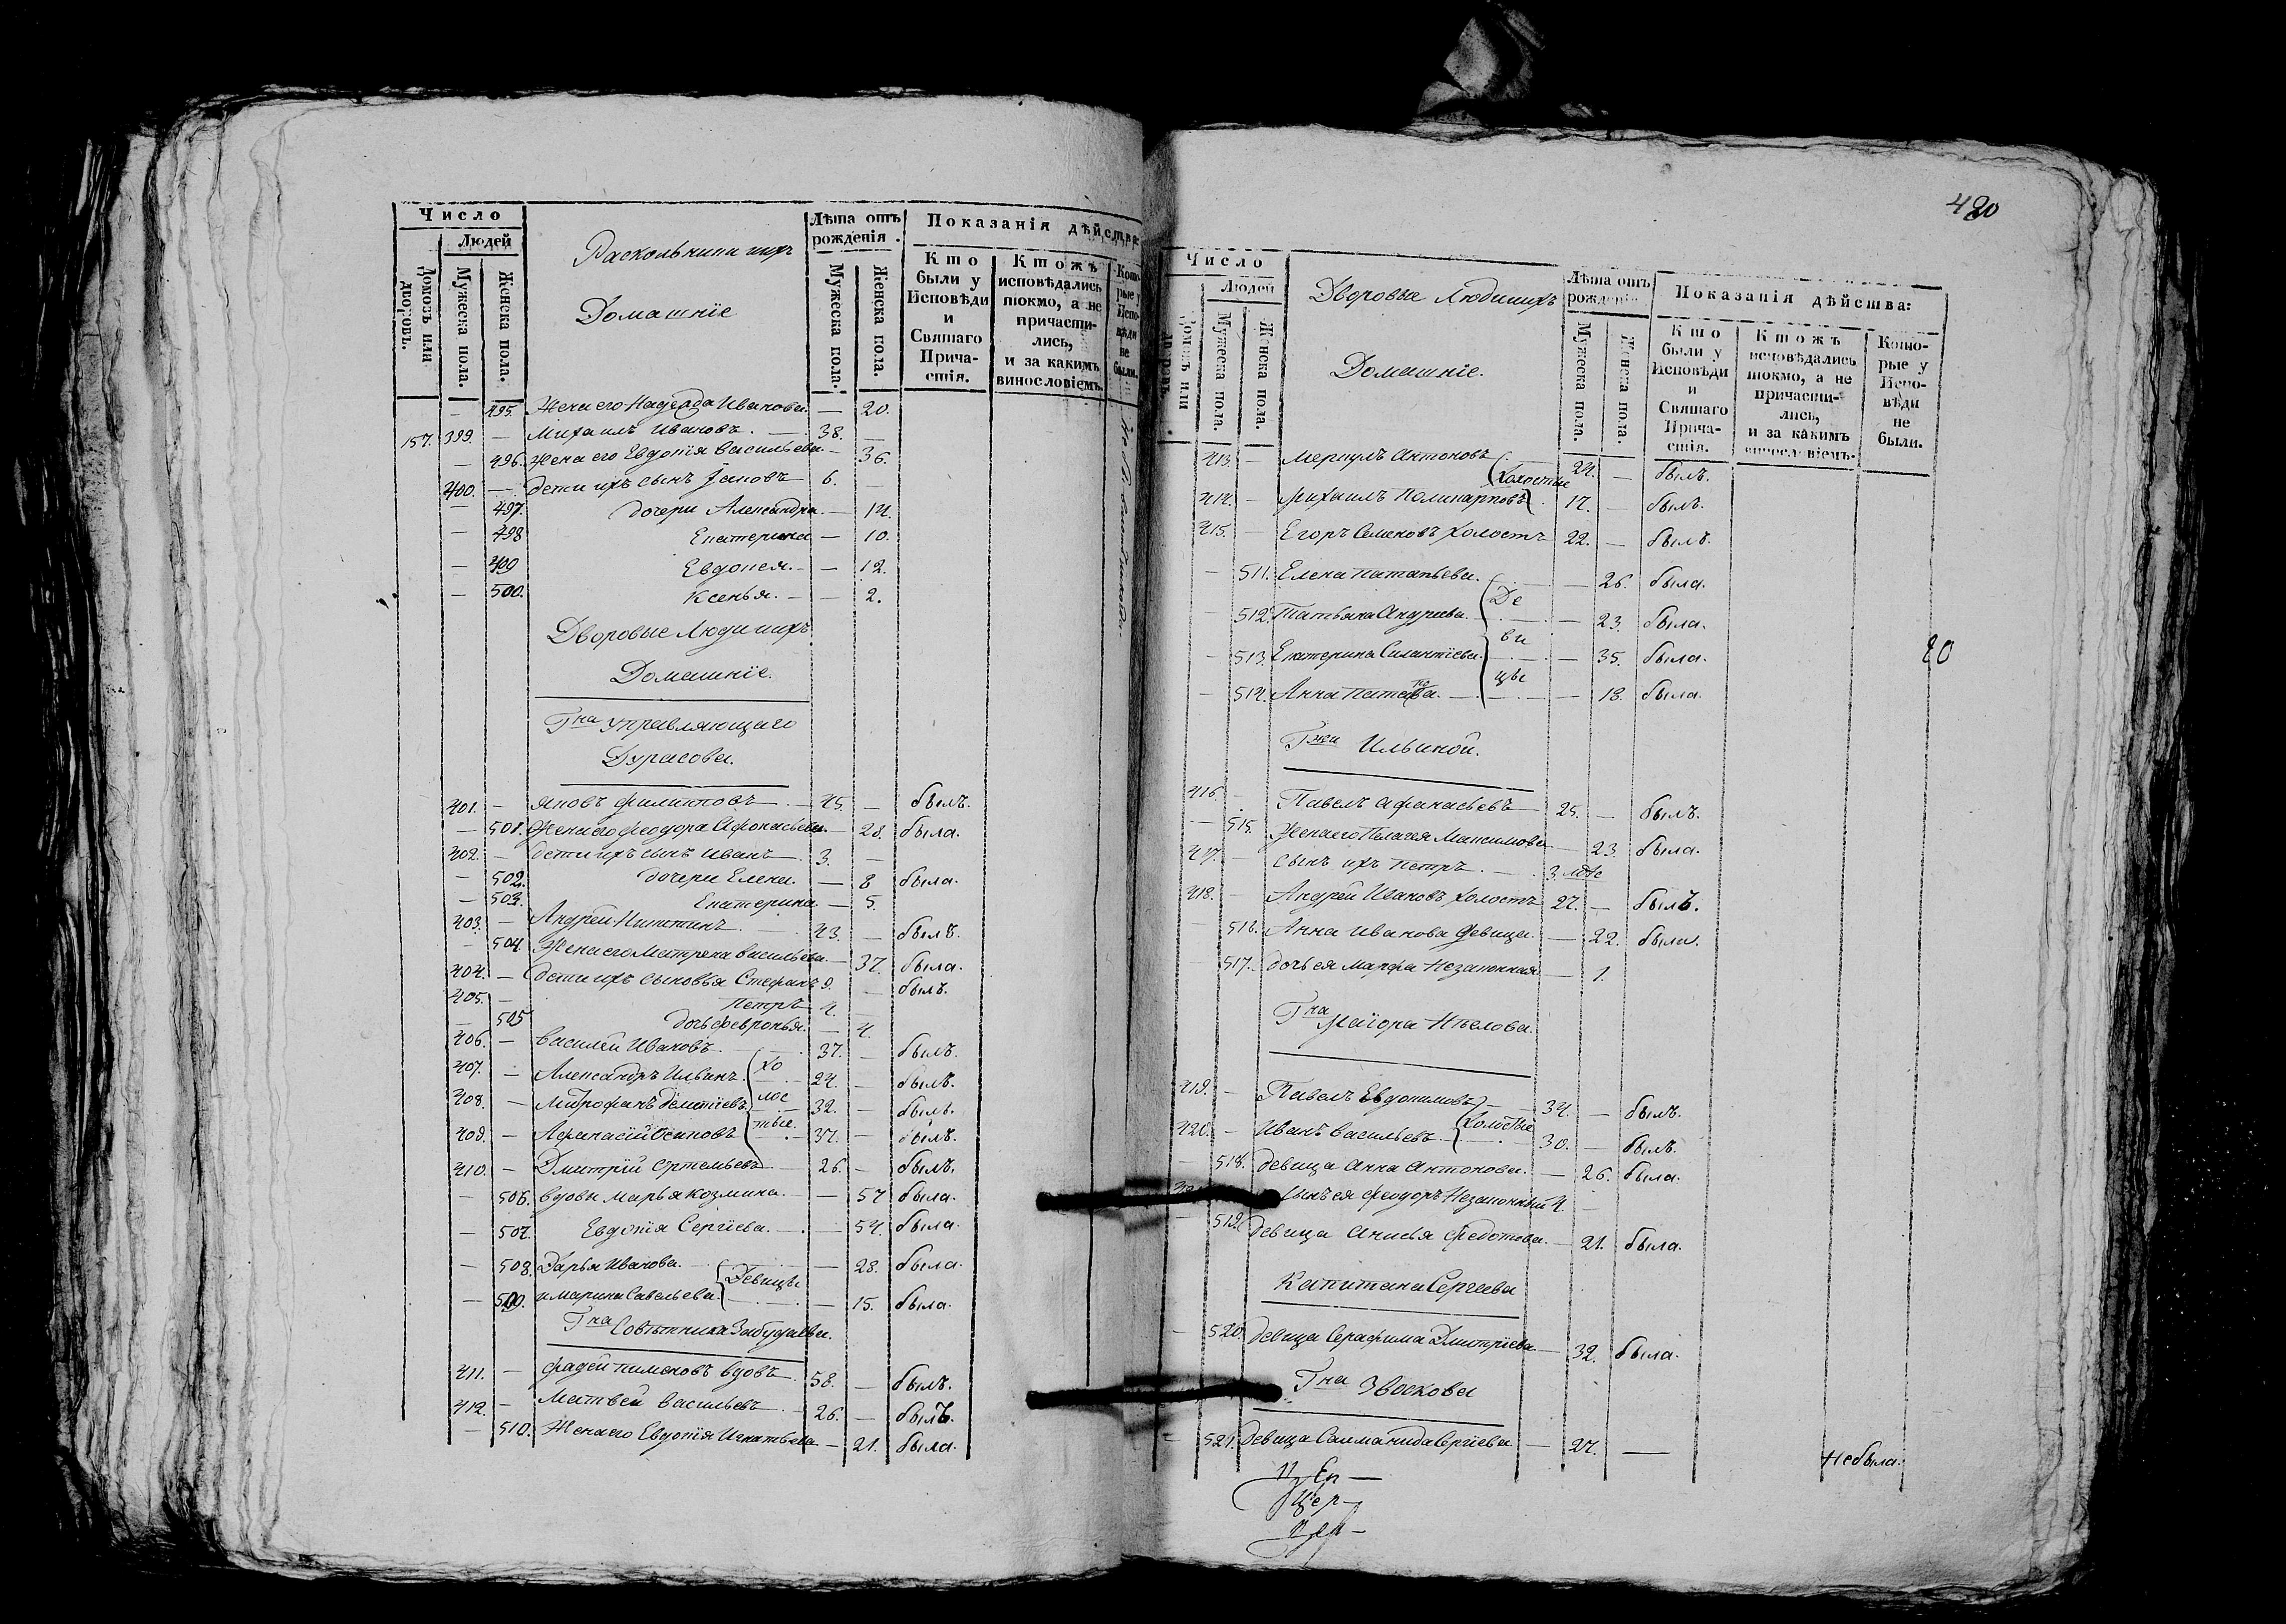 Число
Людей
Домовъ или дворовъ.
Мужеска пола.
Женска пола.
Раскольники ихъ
Домашніе
Лѣта отъ рожденія.
Мужеска пола.
Женска пола.
Показанія дѣйства:
Кто были у Исповѣди и Святаго Причастія.
Ктожъ исповѣдались токмо, а не причастились, и за какимъ винословіемъ.
Которые у Исповѣди не были.
— 495. Жена его Надежда Иванова. — 20.
157. 399. — Михаилъ Ивановъ. — 38. —
— 496. Жена его Евдокія Васильева — 36.
400. — дети ихъ сынъ Яковъ 6. —
— 497. дочери Александра. — 14.
— 498 Екатерина — 10.
— 499 Евдокея. — 12.
— 500. Ксенья. — 2.
Дворовые Люди ихъ
Домашніе.
Гна Управляющаго
Дурасова.
401. — Яковъ Филиповъ — 45. — былъ.
— 501. Жена его Феодора Афонасьева. — 28. была.
402. — дети ихъ сынъ Иванъ 3. —
— 502. дочери Елена. — 8 была.
— 503. Екатерина — 5.
403. — Андрей Никитинъ 43. — былъ.
— 504. Жена его Матрена Васильева. — 37. была.
404. — дети ихъ сыновья Стефанъ 9. — былъ.
405. — Петръ 4. —
— 505 дочь Февронья. — 4.
406. — Василій Ивановъ. 37. — былъ.
407. — Александръ Ильинъ. (хо 24. — былъ.
408. — Митрофанъ Дементіевъ лос 32. — былъ.
409. — Афанасій Осиповъ тые. 37. — былъ.
410. — Дмитрій Артельевъ 26. — былъ.
— 506. вдовы Марья Козмина. — 57 была.
— 507. Евдокія Сергіева. — 54. была.
— 508. Дарья Иванова. — 28. была.
Девицы
— 509. и Марина Савельева. — 15. была.
Гна Советника
411. — Фадей Пименовъ вдовъ 58. — былъ.
412. — Матвей Васильевъ 26. — былъ.
— 510. Жена его Евдокія Игнатьева — 21. была.
480
Число
Людей
Домовъ или дворовъ.
Мужеска пола.
Женска пола.
Дворовые Люди ихъ
Домашніе.
Лѣта отъ рожденія.
Мужеска пола.
Женска пола.
Показанія дѣйства:
Кто были у Исповѣди и Святаго Причастія.
Ктожъ исповѣдались токмо, а не причастились, и за какимъ винословіемъ.
Которые у Исповѣди не были.
413. — Меркулъ Антоновъ 24. — былъ.
(холостые
414. — Михаилъ Поликарповъ 17. — былъ.
415. — Егоръ Семеновъ холостъ 22. — былъ.
— 511. Елена Патапьева. — 26. была.
Де
— 512. Татьяна Андреева. — 23. была.
ви
— 513. Екатерина Силантіева. — 35. была.
цы
— 514. Анна — 18. была.
20
Гжи Ильиной.
416. — Павелъ Афанасьевъ 25. — былъ.
— 515. Жена его Пелагея Максимова — 23. была.
417. — сынъ ихъ Петръ. 3.
418. — Андрей Ивановъ холостъ 27. — былъ.
— 516. Анна Иванова девица. — 22. была.
— 517. дочь ея Марфа Незаконная — 1.
Гна Маіора
419. — Павелъ Евдокимовъ 34. — былъ.
(холостые
420. — Иванъ Васильевъ 30. — былъ.
— 518. девица Анна Антонова. — 26. была.
сынъ ея Феодоръ Незаконный 4. —
— 519. девица Анисья Федотова. — 21. была.
Капитана Сергеева
— 520. девица Серафима Дмитріева — 32. была.
Гна Звоскова
— 521. девица Саламанида Сергіева. — 27. — Небыла.